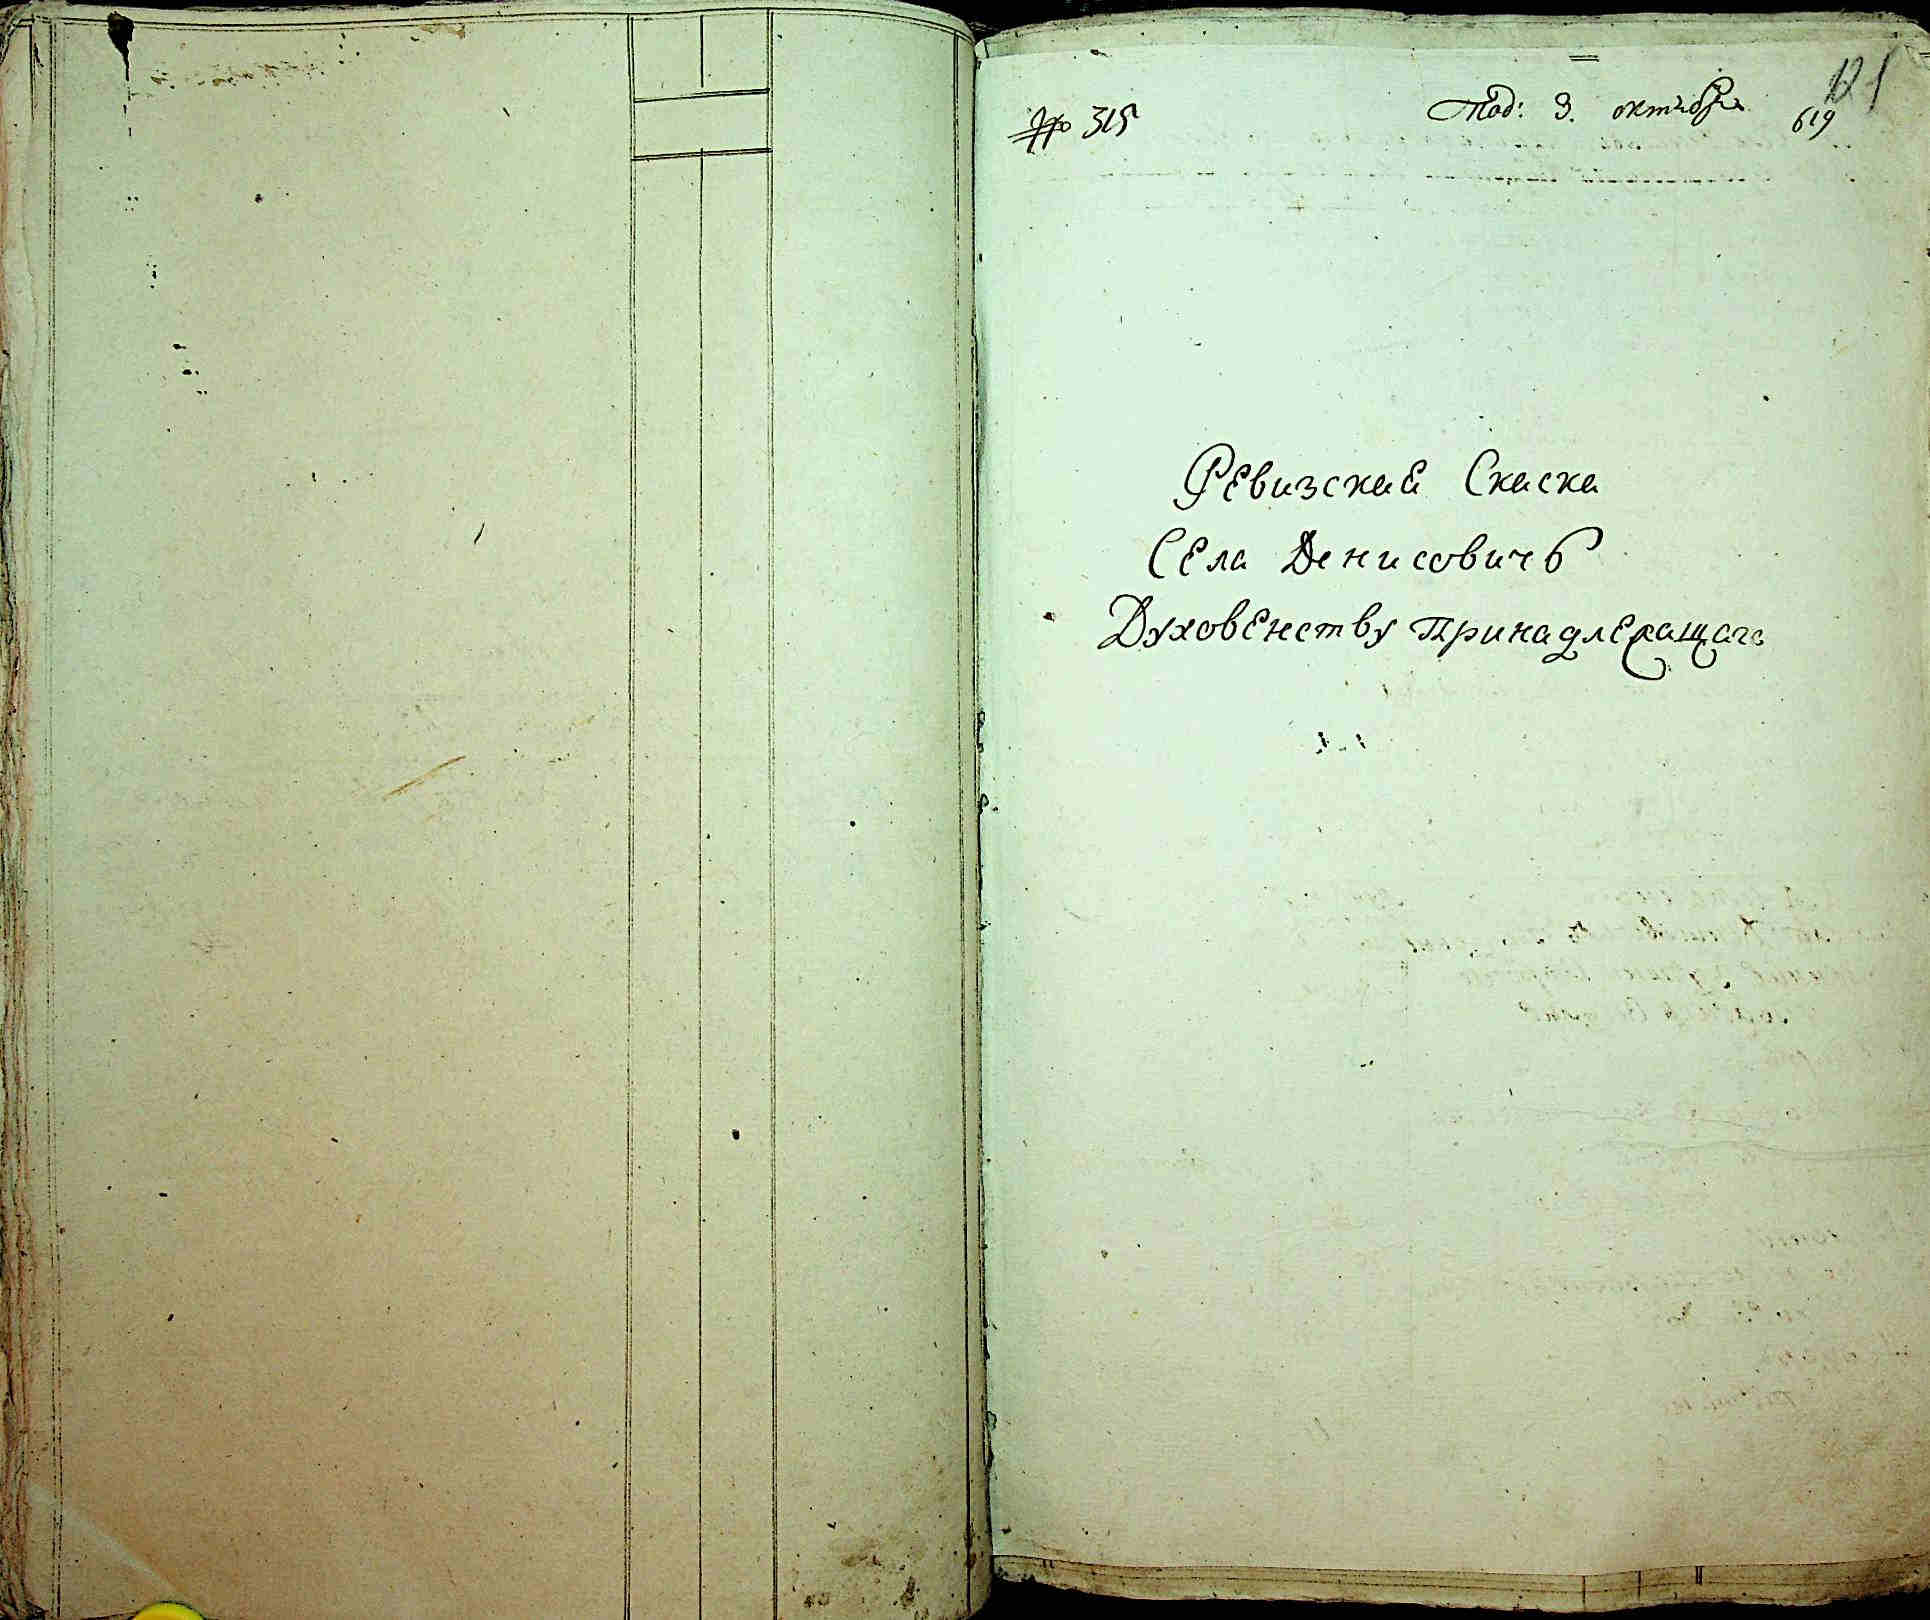 № 315
Под: 3. октября
121
619
Ревизская Скаска
Села Денисовичь
Духовенству принадлежащаго